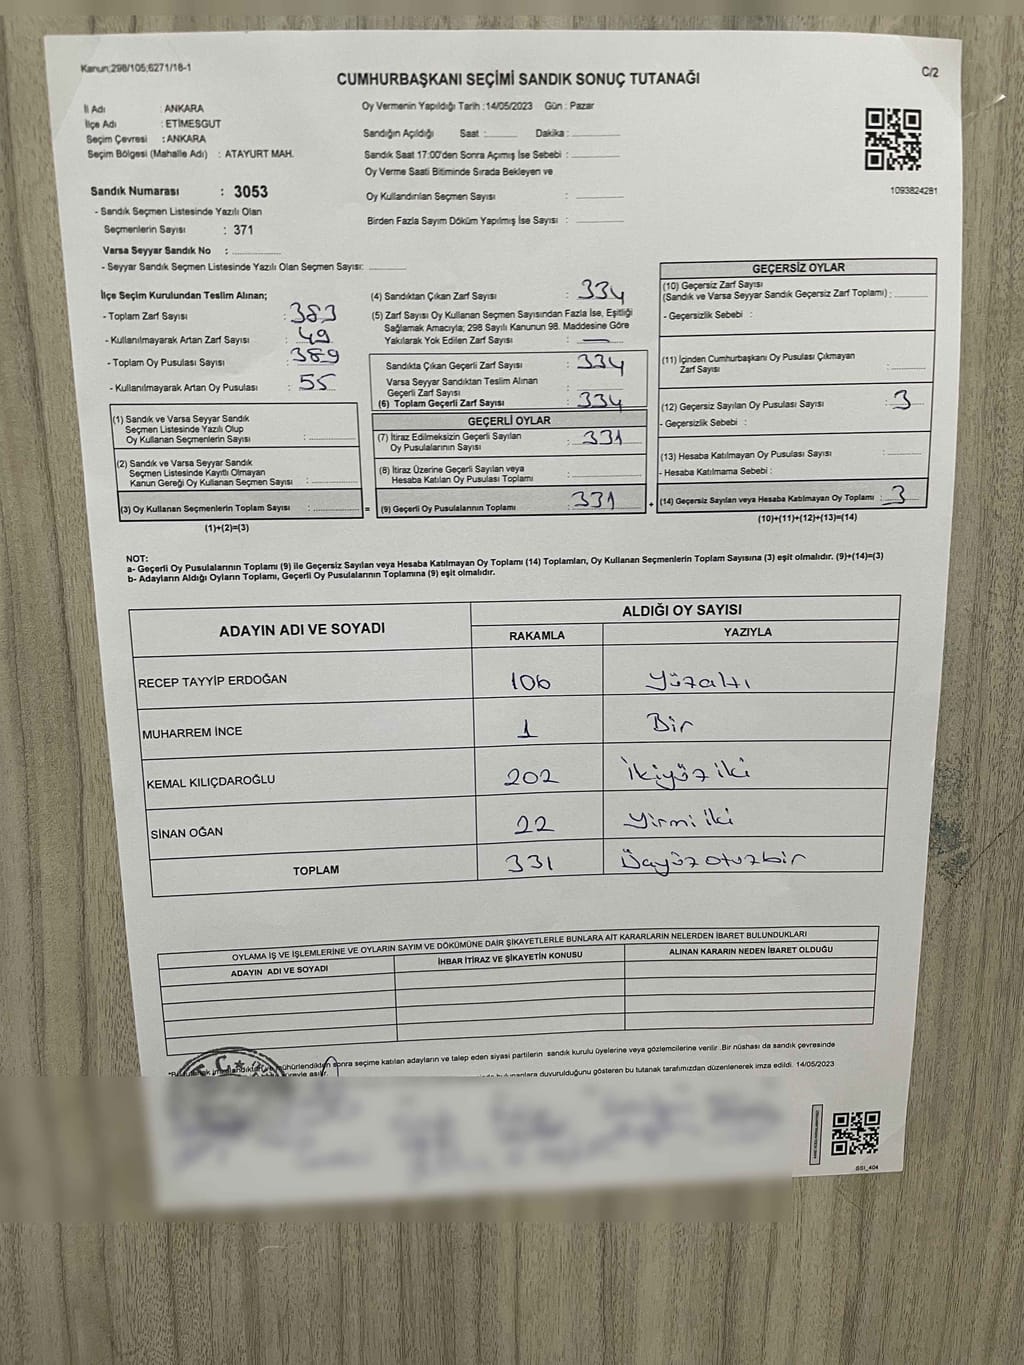 Kanun:298/105;6271/18-1
C/2
CUMHURBAŞKANI SEÇİMİ SANDIK SONUÇ TUTANAĞI
İl Adı : ANKARA
İlçe Adı : ETİMESGUT
Seçim Çevresi : ANKARA
Seçim Bölgesi (Mahalle Adı) : ATAYURT MAH.
Sandık Numarası : 3053
- Sandık Seçmen Listesinde Yazılı Olan
Seçmenlerin Sayısı : 371
Varsa Seyyar Sandık No :
- Seyyar Sandık Seçmen Listesinde Yazılı Olan Seçmen Sayısı:
Oy Vermenin Yapıldığı Tarih :14/05/2023 Gün : Pazar
Sandığın Açıldığı Saat : Dakika :
Sandık Saat 17:00'den Sonra Açımış İse Sebebi :
Oy Verme Saati Bitiminde Sırada Bekleyen ve
Oy Kullandırılan Seçmen Sayısı :
Birden Fazla Sayım Döküm Yapılmış İse Sayısı :
1093824281
İlçe Seçim Kurulundan Teslim Alınan;
- Toplam Zarf Sayısı : 383
- Kullanılmayarak Artan Zarf Sayısı : 49
- Toplam Oy Pusulası Sayısı : 389
- Kullanılmayarak Artan Oy Pusulası : 55
(1) Sandık ve Varsa Seyyar Sandık
Seçmen Listesinde Yazılı Olup
Oy Kullanan Seçmenlerin Sayısı :
(2) Sandık ve Varsa Seyyar Sandık
Seçmen Listesinde Kayıtlı Olmayan
Kanun Gereği Oy Kullanan Seçmen Sayısı :
(3) Oy Kullanan Seçmenlerin Toplam Sayısı :
(1)+(2)=(3)
=
(4) Sandıktan Çıkan Zarf Sayısı : 334
(5) Zarf Sayısı Oy Kullanan Seçmen Sayısından Fazla İse, Eşitliği
Sağlamak Amacıyla; 298 Sayılı Kanunun 98. Maddesine Göre
Yakılarak Yok Edilen Zarf Sayısı : —
Sandıkta Çıkan Geçerli Zarf Sayısı : 334
Varsa Seyyar Sandıktan Teslim Alınan
Geçerli Zarf Sayısı :
(6) Toplam Geçerli Zarf Sayısı : 334
GEÇERLİ OYLAR
(7) İtiraz Edilmeksizin Geçerli Sayılan
Oy Pusulalarının Sayısı : 331
(8) İtiraz Üzerine Geçerli Sayılan veya
Hesaba Katılan Oy Pusulası Toplamı :
(9) Geçerli Oy Pusulalarının Toplamı : 331
+
GEÇERSİZ OYLAR
(10) Geçersiz Zarf Sayısı
(Sandık ve Varsa Seyyar Sandık Geçersiz Zarf Toplamı) :
- Geçersizlik Sebebi :
(11) İçinden Cumhurbaşkanı Oy Pusulası Çıkmayan
Zarf Sayısı :
(12) Geçersiz Sayılan Oy Pusulası Sayısı : 3
- Geçersizlik Sebebi :
(13) Hesaba Katılmayan Oy Pusulası Sayısı :
- Hesaba Katılmama Sebebi :
(14) Geçersiz Sayılan veya Hesaba Katılmayan Oy Toplamı : 3
(10)+(11)+(12)+(13)=(14)
NOT:
a- Geçerli Oy Pusulalarının Toplamı (9) ile Geçersiz Sayılan veya Hesaba Katılmayan Oy Toplamı (14) Toplamları, Oy Kullanan Seçmenlerin Toplam Sayısına (3) eşit olmalıdır. (9)+(14)=(3)
b- Adayların Aldığı Oyların Toplamı, Geçerli Oy Pusulalarının Toplamına (9) eşit olmalıdır.
ADAYIN ADI VE SOYADI ALDIĞI OY SAYISI
RAKAMLA YAZIYLA
RECEP TAYYİP ERDOĞAN 106 Yüzaltı
MUHARREM İNCE 1 Bir
KEMAL KILIÇDAROĞLU 202 İkiyüz iki
SİNAN OĞAN 22 Yirmi iki
TOPLAM 331 Üçyüz otuzbir
OYLAMA İŞ VE İŞLEMLERİNE VE OYLARIN SAYIM VE DÖKÜMÜNE DAİR ŞİKAYETLERLE BUNLARA AİT KARARLARIN NELERDEN İBARET BULUNDUKLARI
ADAYIN ADI VE SOYADI İHBAR İTİRAZ VE ŞİKAYETİN KONUSU ALINAN KARARIN NEDEN İBARET OLDUĞU
sonra seçime katılan adayların ve talep eden siyasi partilerin sandık kurulu üyelerine veya gözlemcilerine verilir .Bir nüshası da sandık çevresinde
duyurulduğunu gösteren bu tutanak tarafımızdan düzenlenerek imza edildi. 14/05/2023
SSI_404